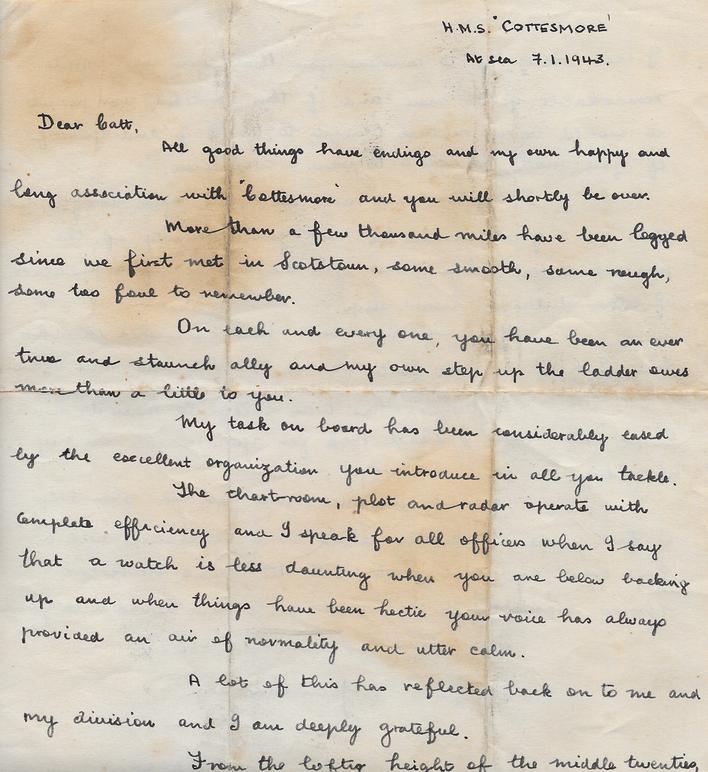 H.M.S. 'COTTESMORE'
At sea 7.1.1943.
Dear Catt,
All good things have endings and my own happy and
long association with 'Cottesmore' and you will shortly be over.
More than a few thousand miles have been logged
since we first met in Scotstoun, some smooth, some rough,
some too foul to remember.
On each and every one, you have been an ever
true and staunch ally and my own step up the ladder owes
more than a little to you.
My task on board has been considerably eased
by the excellent organization you introduce in all you tackle.
The chart-room, plot and radar operate with
complete efficiency and I speak for all officers when I say
that a watch is less daunting when you are below backing
up and when things have been hectic your voice has always
provided an air of normality and utter calm.
A lot of this has reflected back on to me and
my division and I am deeply grateful.
From the lofty height of the middle twenties,